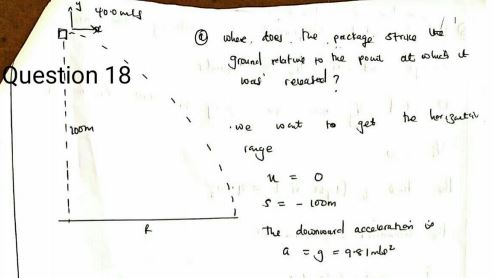 y 40.0 m/s
x
Question 18
100m
R
(a) where does the package strike the
ground relative to the point at which it
was released?
we want to get the horizontal
range
u = 0
s = - 100m
The downward acceleration is
a = g = 9.81m/s²